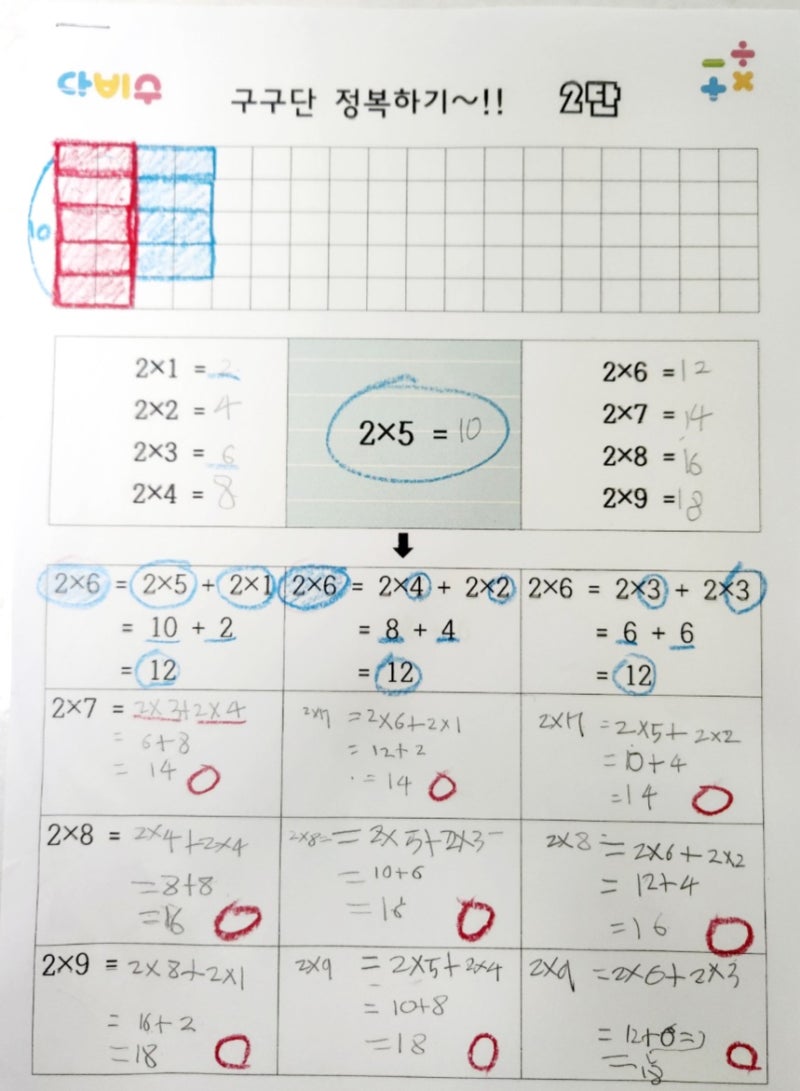 다비수
구구단 정복하기~!! 2단
10
2×1 = 2
2×2 = 4
2×3 = 6
2×4 = 8
2×5 = 10
2×6 = 12
2×7 = 14
2×8 = 16
2×9 = 18
2×6 = 2×5 + 2×1
= 10 + 2
= 12
2×6 = 2×4 + 2×2
= 8 + 4
= 12
2×6 = 2×3 + 2×3
= 6 + 6
= 12
2×7 = 2×3+2×4
= 6+8
= 14
2×7 = 2×6+2×1
= 12+2
= 14
2×7 = 2×5+2×2
= 10+4
= 14
2×8 = 2×4+2×4
= 8+8
= 16
2×8= = 2×5+2×3
= 10+6
= 16
2×8 = 2×6+2×2
= 12+4
= 16
2×9 = 2×8+2×1
= 16+2
= 18
2×9 = 2×5+2×4
= 10+8
= 18
2×9 = 2×6+2×3
= 12+6
= 18